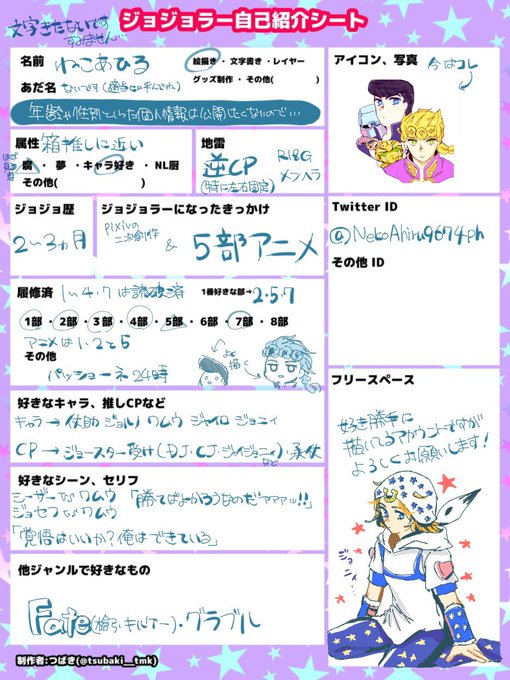 ジョジョラー自己紹介シート
文字きたないです
すみません…
名前 ねこあひる
絵描き・文字書き・レイヤー
グッズ制作・その他( )
あだ名 ないです
年齢や性別といった個人情報は公開したくないので…
アイコン、写真 今はコレ
属性 箱推しに近い
腐・夢・キャラ好き・NL厨
その他( )
地雷
逆CP
(特に左右固定)
R18G
メンヘラ
ジョジョ歴
2〜3ヵ月
ジョジョラーになったきっかけ
pixivの
二次創作
& 5部アニメ
Twitter ID
@NekoAhiru9674ph
その他 ID
履修済 1〜4・7は読破済
1番好きな部→ 2・5・7
1部・2部・3部・4部・5部・6部・7部・8部
アニメは1・2と5
その他
パッショーネ24時
よく描く
好きなキャラ、推しCPなど
キャラ→仗助 ジョルノ ワムウ ジャイロ ジョニィ
CP→ジョースター受け(DJ・CJ・ジャイジョニ)・承仗
など
好きなシーン、セリフ
シーザーvsワムウ
ジョセフvsワムウ
「勝てばよかろうなのだァァァァッ!!」
「覚悟はいいか?俺はできている」
他ジャンルで好きなもの
Fate(槍弓・キャスター)・グラブル
フリースペース
好き勝手に
描いてるアカウントですが
よろしくお願いします!
ジョニィ
制作者:つばき(@tsubaki__tmk)